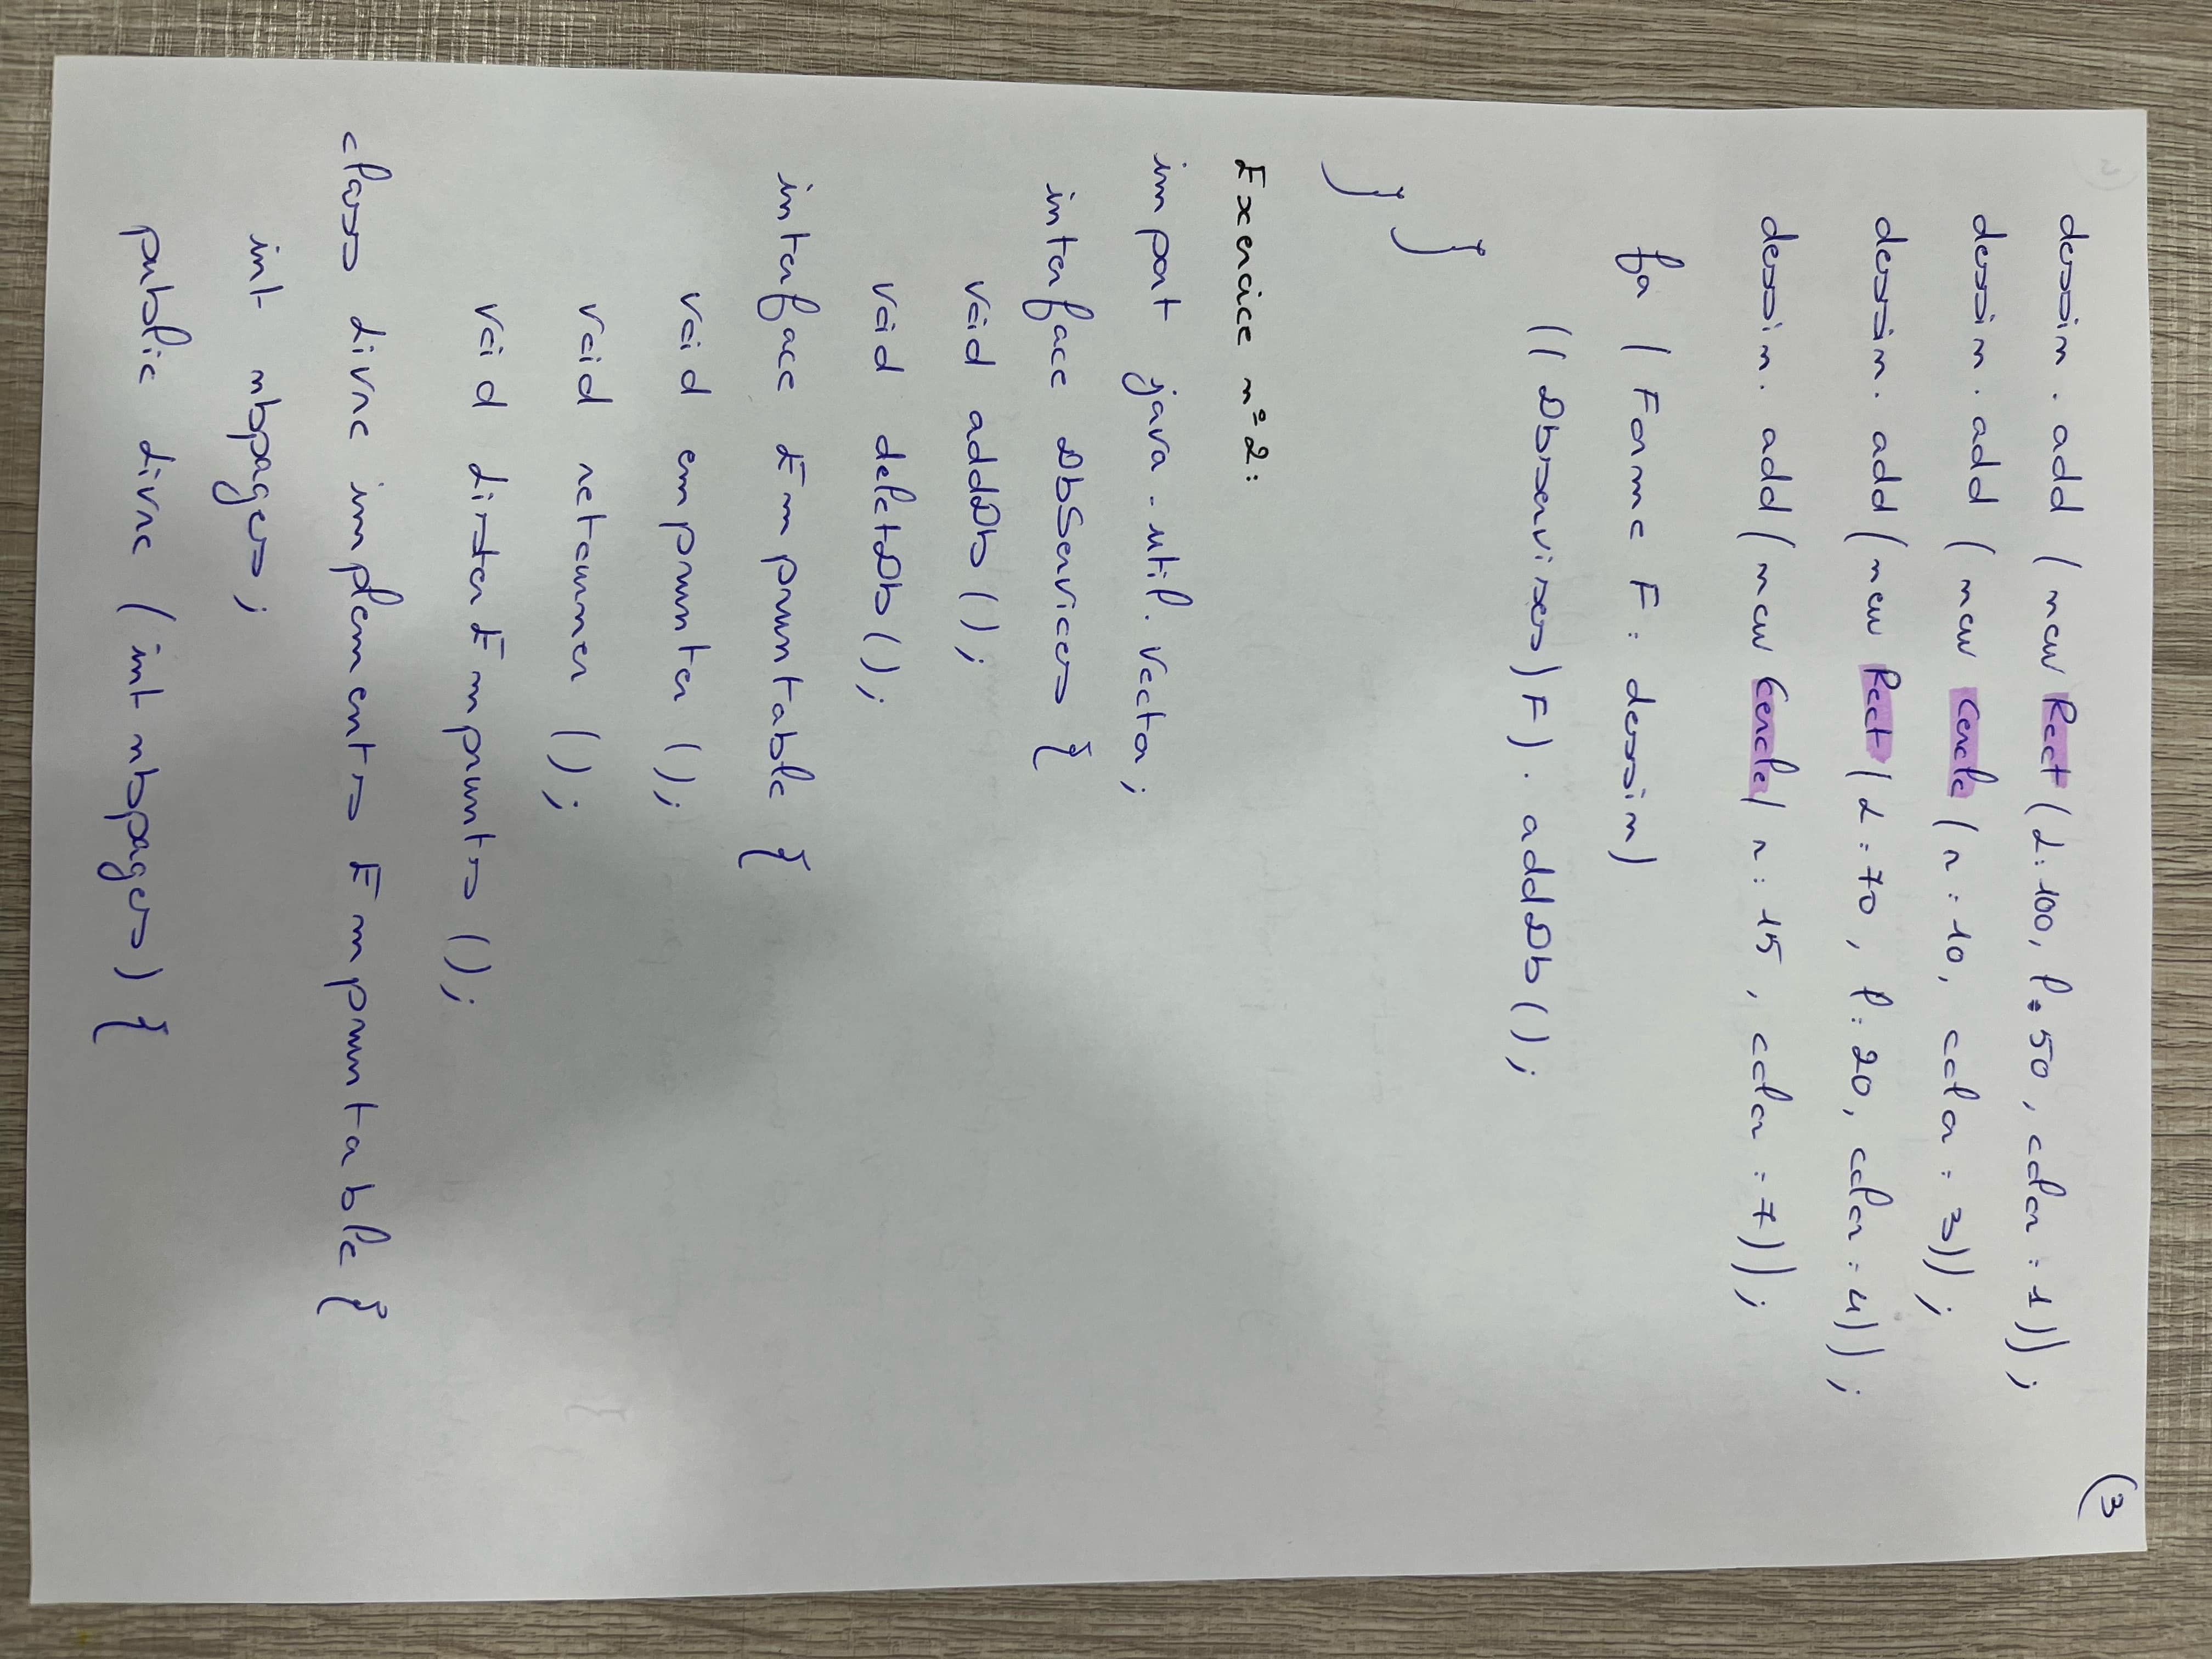 (3
dessin. add ( new Rect ( L: 100, l: 50, color : 1));
dessin. add ( new Cercle ( r : 10, color : 3));
dessin. add ( new Rect ( L : 70, l : 20, color : 4));
dessin. add ( new Cercle ( r : 15, color : 7));
for ( Forme F : dessin)
(( Observises) F). addOb ();
}
}
Exercice n°2:
import java. util. vector;
interface ObServices {
void addOb ();
void deletOb ();
interface Empruntable {
void emprunter ();
void retourner ();
void listerEmprunts ();
class Livre implements Empruntable {
int nbpages;
public Livre ( int nbpages) {